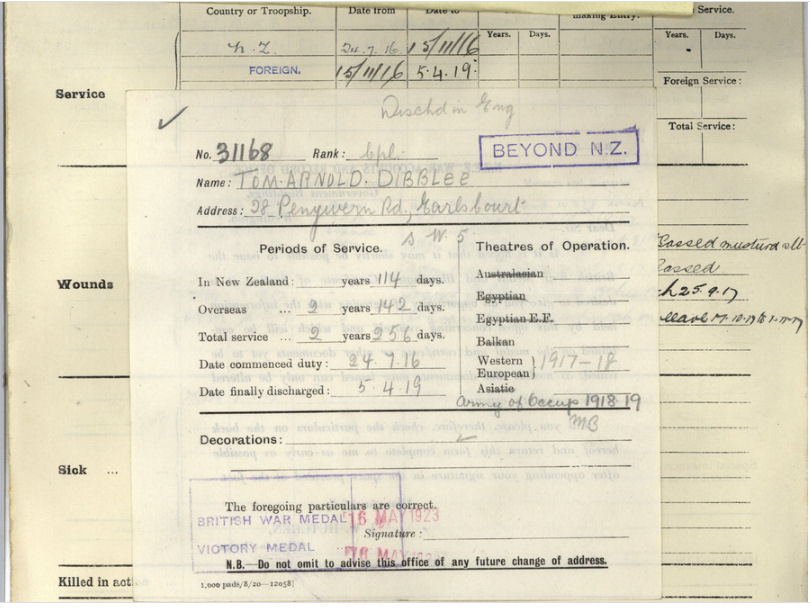 Country or Troopship. Date from Date to making Entry. Service.
Years. Days. Years. Days.
Service N.Z. 24.7.16 15/11/16
FOREIGN. 15/11/16 5.4.19. Foreign Service:
Total Service:
Dischd in Eng
No. 31168 Rank: Cpl. BEYOND N.Z.
Name: TOM ARNOLD DIBBLEE
Address: 28 Penywern Rd, Earlscourt
S W. 5.
Periods of Service. Theatres of Operation.
Gassed mustard
Gassed
Wounds
25.9.17
In New Zealand: years 114 days. Australasian
Egyptian
Overseas ... 2 years 142 days. Egyptian E.F.
Total service ... 2 years 256 days. Balkan
Date commenced duty: 24 7.16 Western European} 1917-18
Date finally discharged: 5.4.19 Asiatic
Army of Occup 1918 19
MB
Decorations:
Sick ...
The foregoing particulars are correct.
BRITISH WAR MEDAL 16 MAY 1923
Signature:
VICTORY MEDAL MAY
N.B.—Do not omit to advise this office of any future change of address.
Killed in act
1,000 pads/8/20—12058]